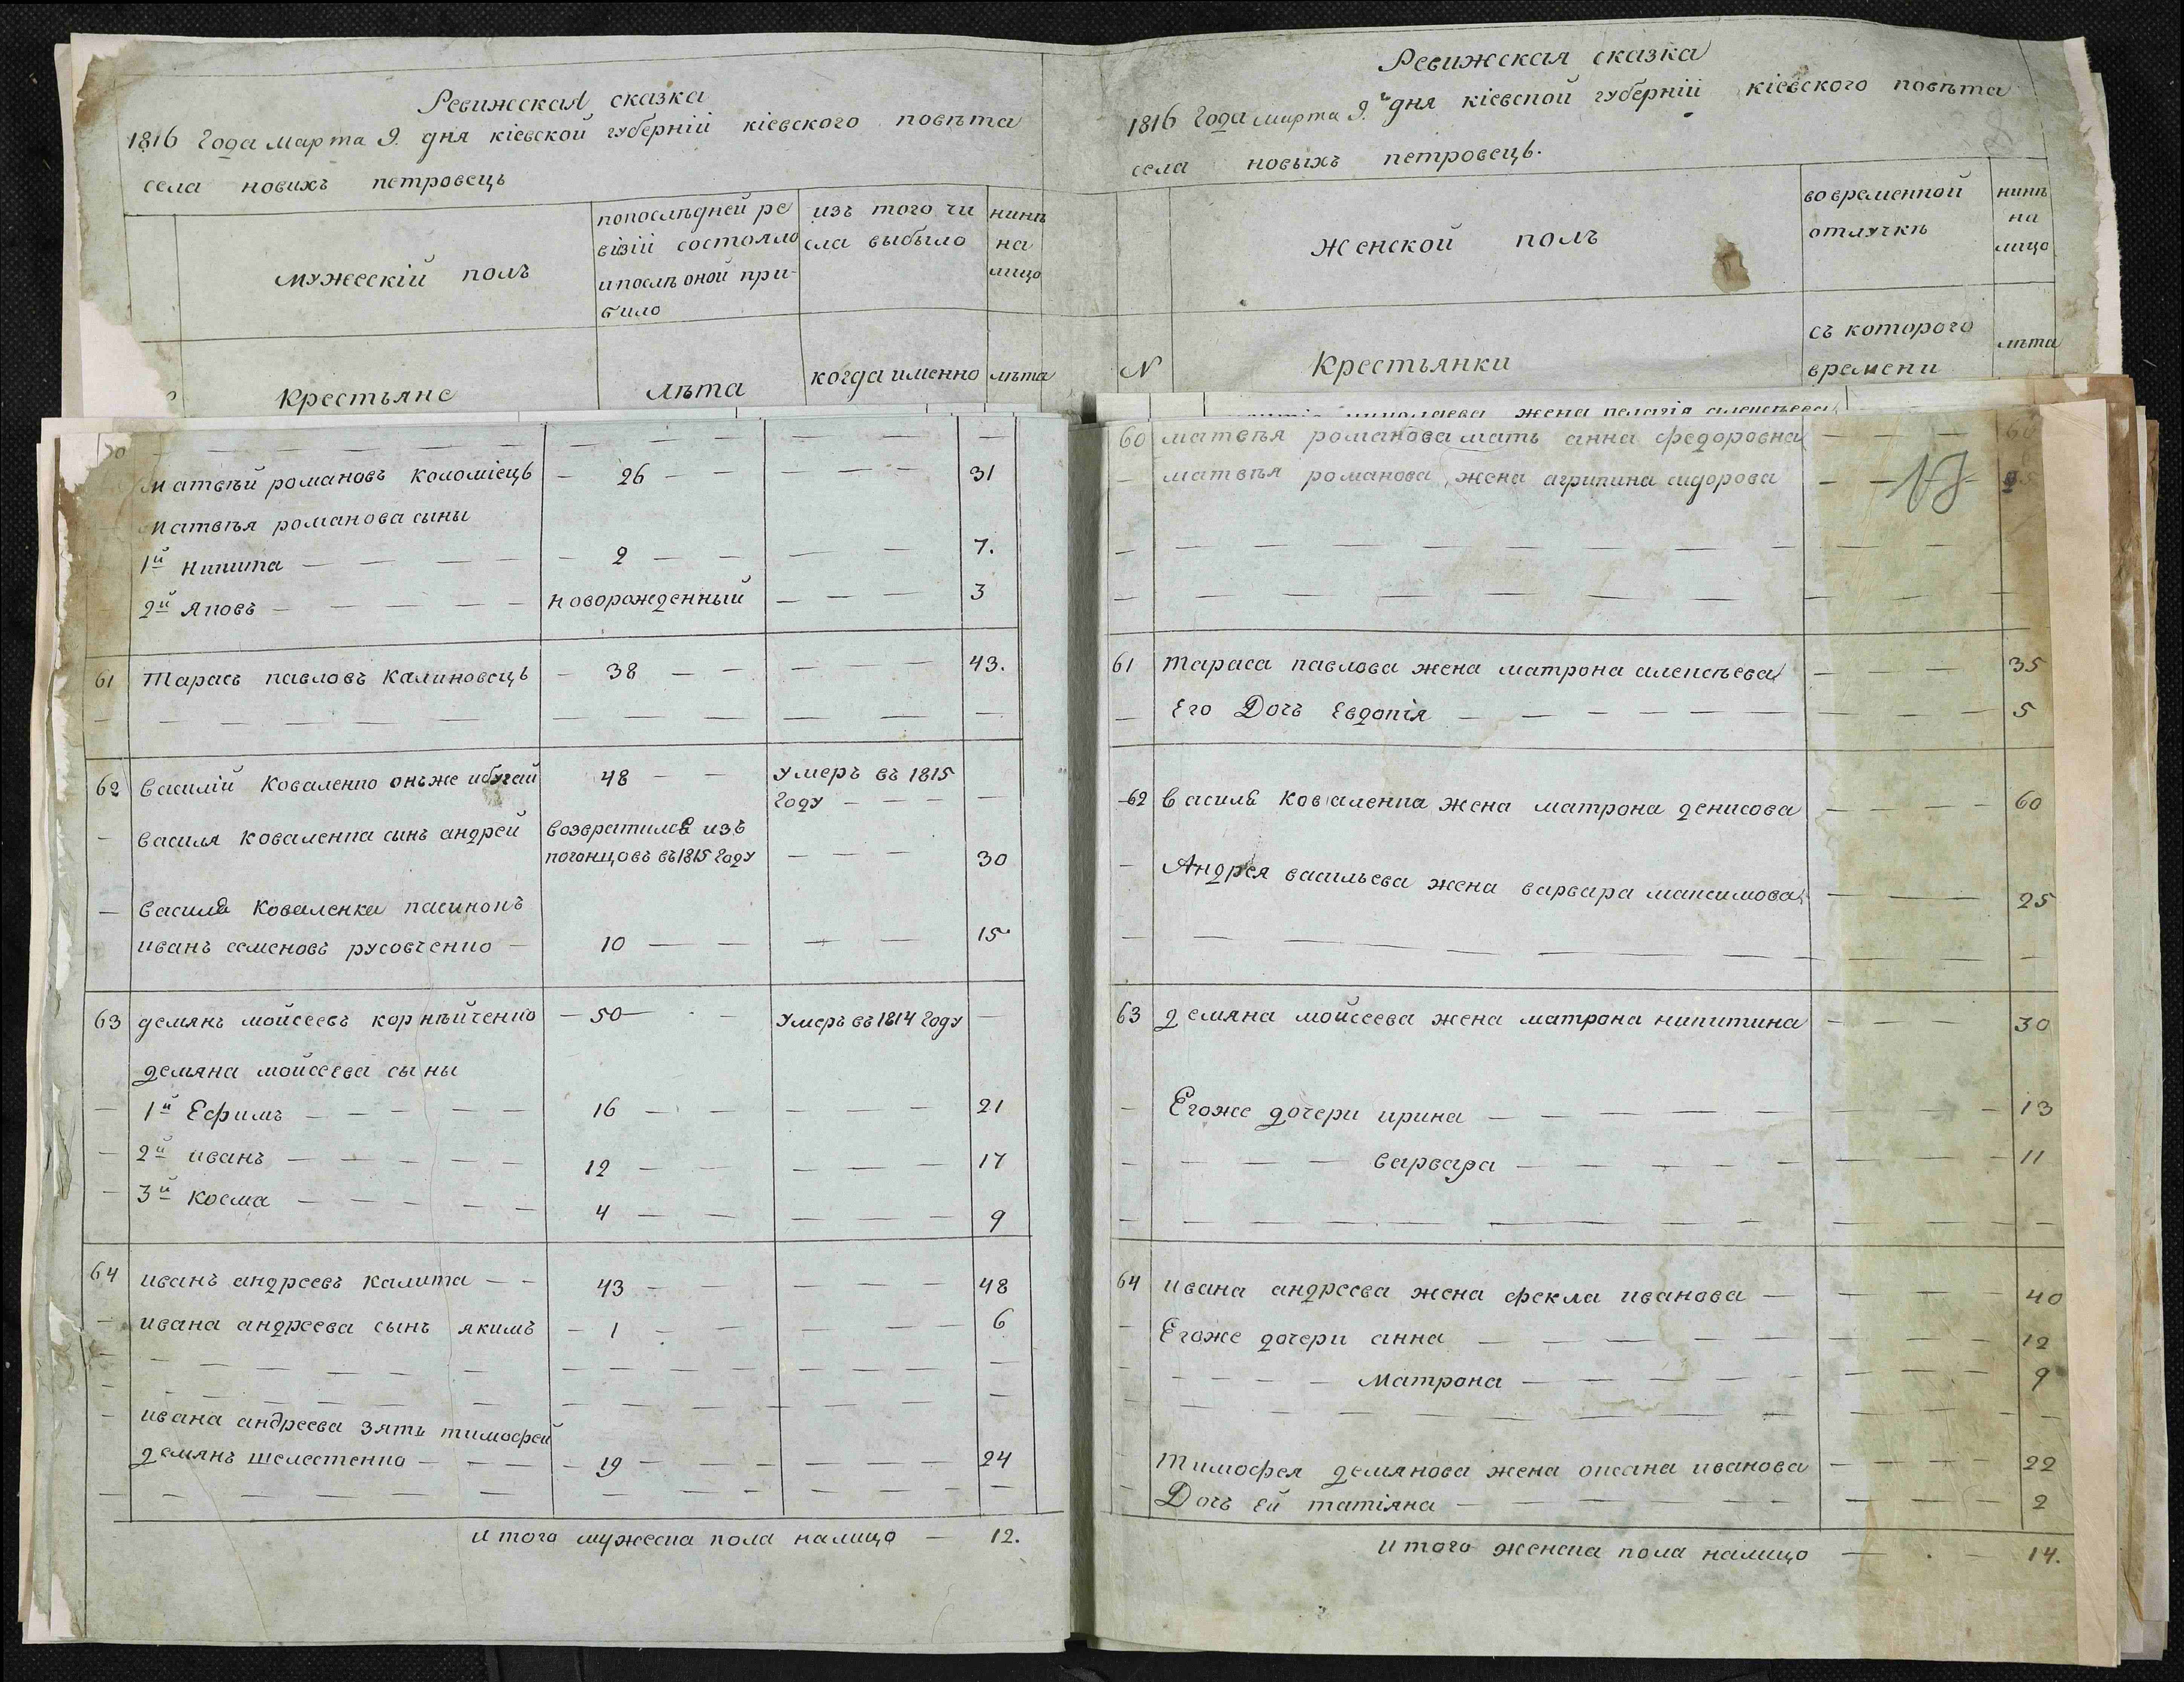 Ревижская сказка
1816 Года марта 9. дня кіевской губерніи кіевского повѣта
села новихъ петровець
мужескій полъ
попослѣдней ре
візіи состояло
ипослѣ оной при-
било
изъ того чи
сла выбыло
нинѣ
на
лицо
Крестьяне
лѣта
когда именно
лѣта
Матвѣй романовъ коломіець — 26 — — — — — 31
Матвѣя романова сыны
1й никита — — — — — 2 — — — — 7.
2й яковъ — — — — — новорожденный — — — 3
61 Тарасъ павловъ Калиновець — 38 — — — — — 43.
62 Василій Коваленко онъже ибугай 48 — — умеръ въ 1815
Году — — — —
— Василя коваленка сынъ андрей возвратился изъ
погонцовъ въ 1815 Году — — — 30
— Василя Коваленка пасинокъ
иванъ семеновъ русовченко — 10 — — — — 15
63 демянъ мойсеевъ корнѣйченко — 50 — - — Умеръ въ 1814 Году —
демяна мойсеева сыны
— 1й Ефимъ — — — — — 16 — — — — — 21
— 2й иванъ — — — — — 12 — — — — — 17
— 3й косма — — — — — 4 — — — — — 9
64 иванъ андреевъ калита — — 43 — — — — — 48
— ивана андреева сынъ якимъ — 1 — — — — — 6
— ивана андреева зять тимофей
демянъ шелестенко — — — — 19 — — — — — — 24
итого мужеска пола налицо — 12.
Ревижская сказка
1816 Года марта 9.ъ дня кіевской губерніи кіевского повѣта
села новыхъ петровець.
N
женской полъ
вовременной
отлучкѣ
нинѣ
на
лицо
Крестьянки
съ которого
времени
лѣта
жена пелагія алексѣева
60 матвѣя романова мать анна федоровна — — — 60
— матвѣя романова жена агрипина сидорова — —
17
61 тараса павлова жена матрона алексѣева — — — 35
— Его Дочъ Евдокія — — — — — — — — — 5
62 василя коваленка жена матрона денисова — — — — 60
— Андрея васильева жена варвара максимова — — — 25
63 демяна мойсеева жена матрона никитина — — — 30
— Егоже дочери ирина — — — — — — — — — 13
— — — — варвара — — — — — — — — — 11
64 ивана андреева жена фекла иванова — — — — 40
— Егоже дочери анна — — — — — — — — — 12
— — — — — Матрона — — — — — — — — — 9
— Тимофея демянова жена оксана иванова — — — — 22
— Дочъ ей татіяна — — — — — — — — — 2
итого женска пола налицо — . — 14.